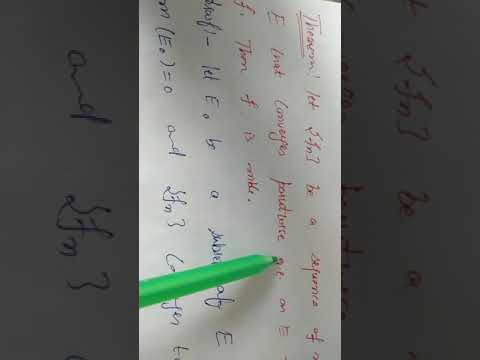 Theorem: let {fn} be a sequence of
E that converges pointwise a.e. on E
f. Then f is mble.
Proof:- let E₀ be a subset of E
m(E₀)=0 and {fn} converges to